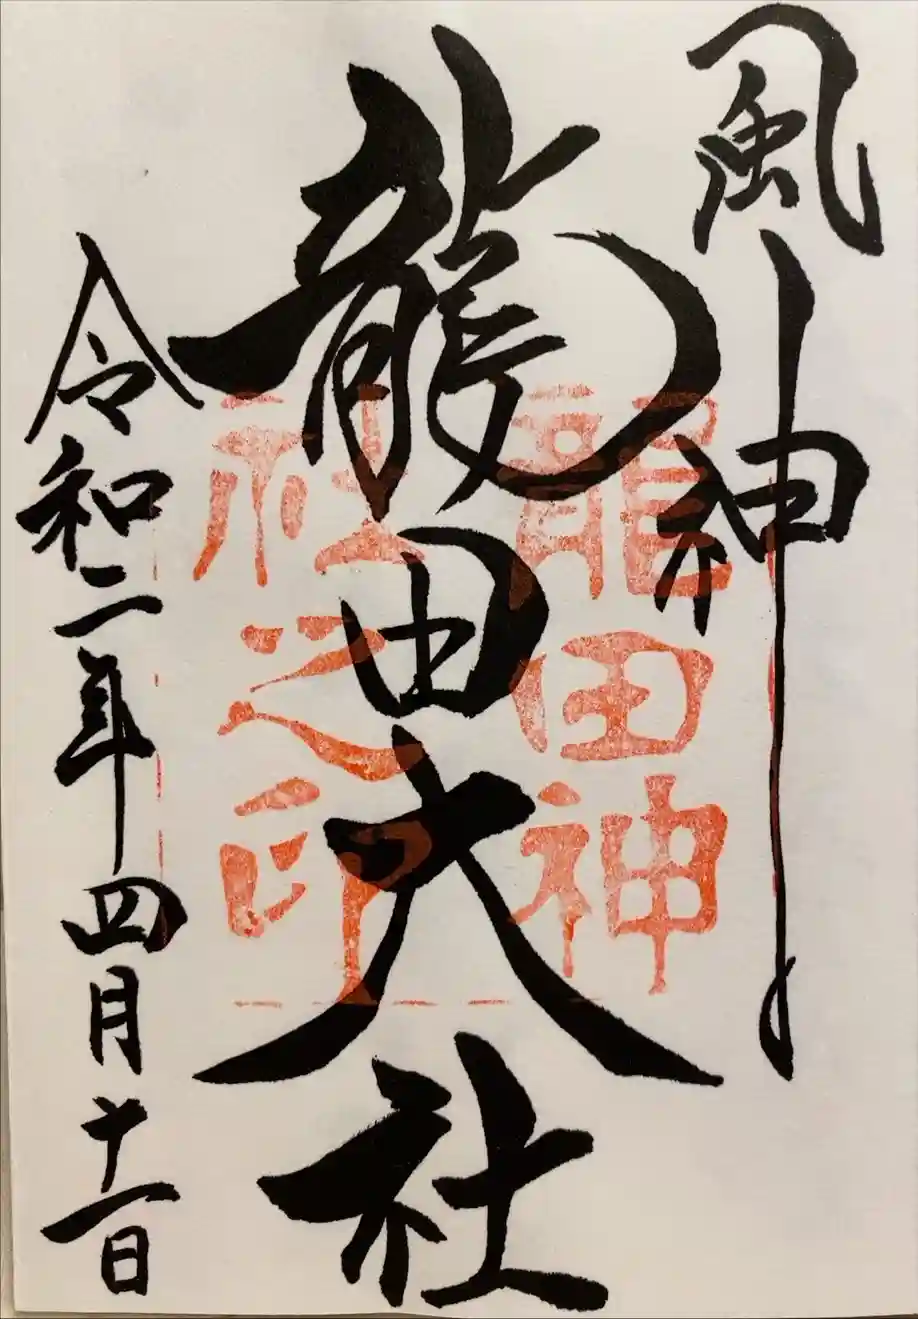 風神
龍田大社
龍田神
社之印
令和二年四月十一日